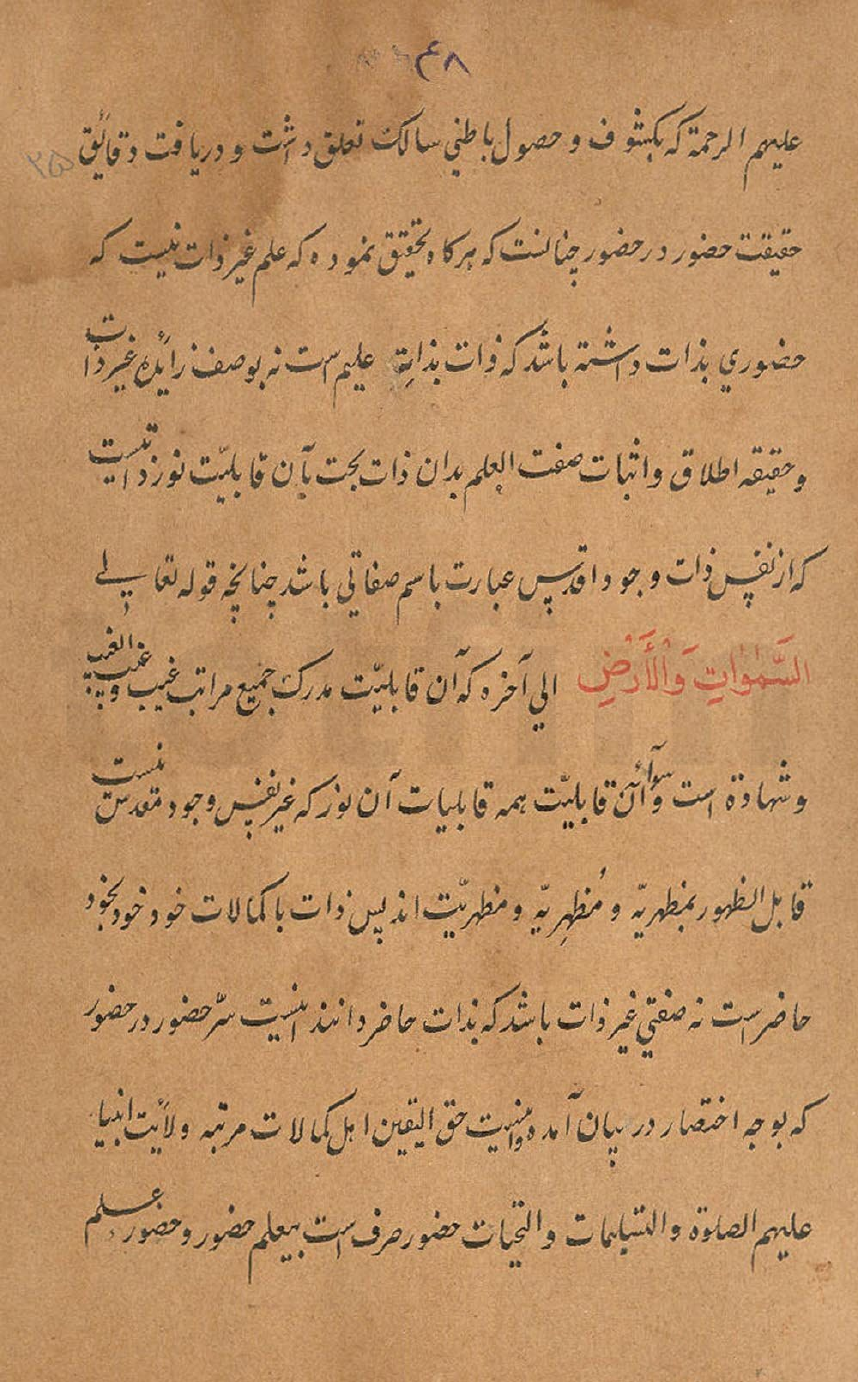 ۴۸
علیهم الرحمة که بکشوف و حصول باطنی سالک تعلق داشت و دریافت دقایق
حقیقت حضور در حضور چنانست که هرکاه تحقیق نموده که علم غیر ذات نیست که
حضوری بذات داشته باشد که ذات بذاته علیم است نه بوصف زائده غیر ذات
و حقیقه اطلاق و اثبات صفت العلم بدان ذات بحت بآن قابلیّت نور ذاتیست
که از نفس ذات وجود اقدس عبارت باسم صفاتی باشد چنانچه قوله تعالی
السَّمٰوٰاتِ وَالْأَرْضِ الی آخره که آن قابلیّت مدرک جمیع مراتب غیب و غیب الغیب
و شهادة است و سوای آن قابلیّت همه قابلیات آن نور که غیر نفس وجود مقدس نیست
قابل الظهور بمظهریّه و مُظهِریّه و مظهریّت اند پس ذات با کمالات خود خود بخود
حاضر است نه صفتی غیر ذات باشد که بذات حاضر دانند اینست سرّ حضور در حضور
که بوجه اختصار در بیان آمده و اینست حق الیقین اهل کمالات مرتبه ولایت انبیا
علیهم الصلوة والتسلیمات والتحیات حضور صرف است بیعلم حضور و حضور علم